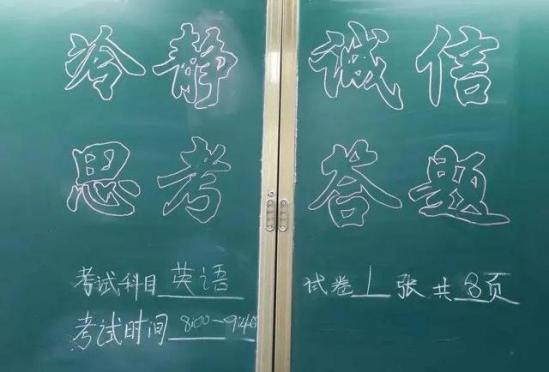 冷静 诚信
思考 答题
考试科目 英语 试卷 1 张 共 8页
考试时间 8:00~9:40